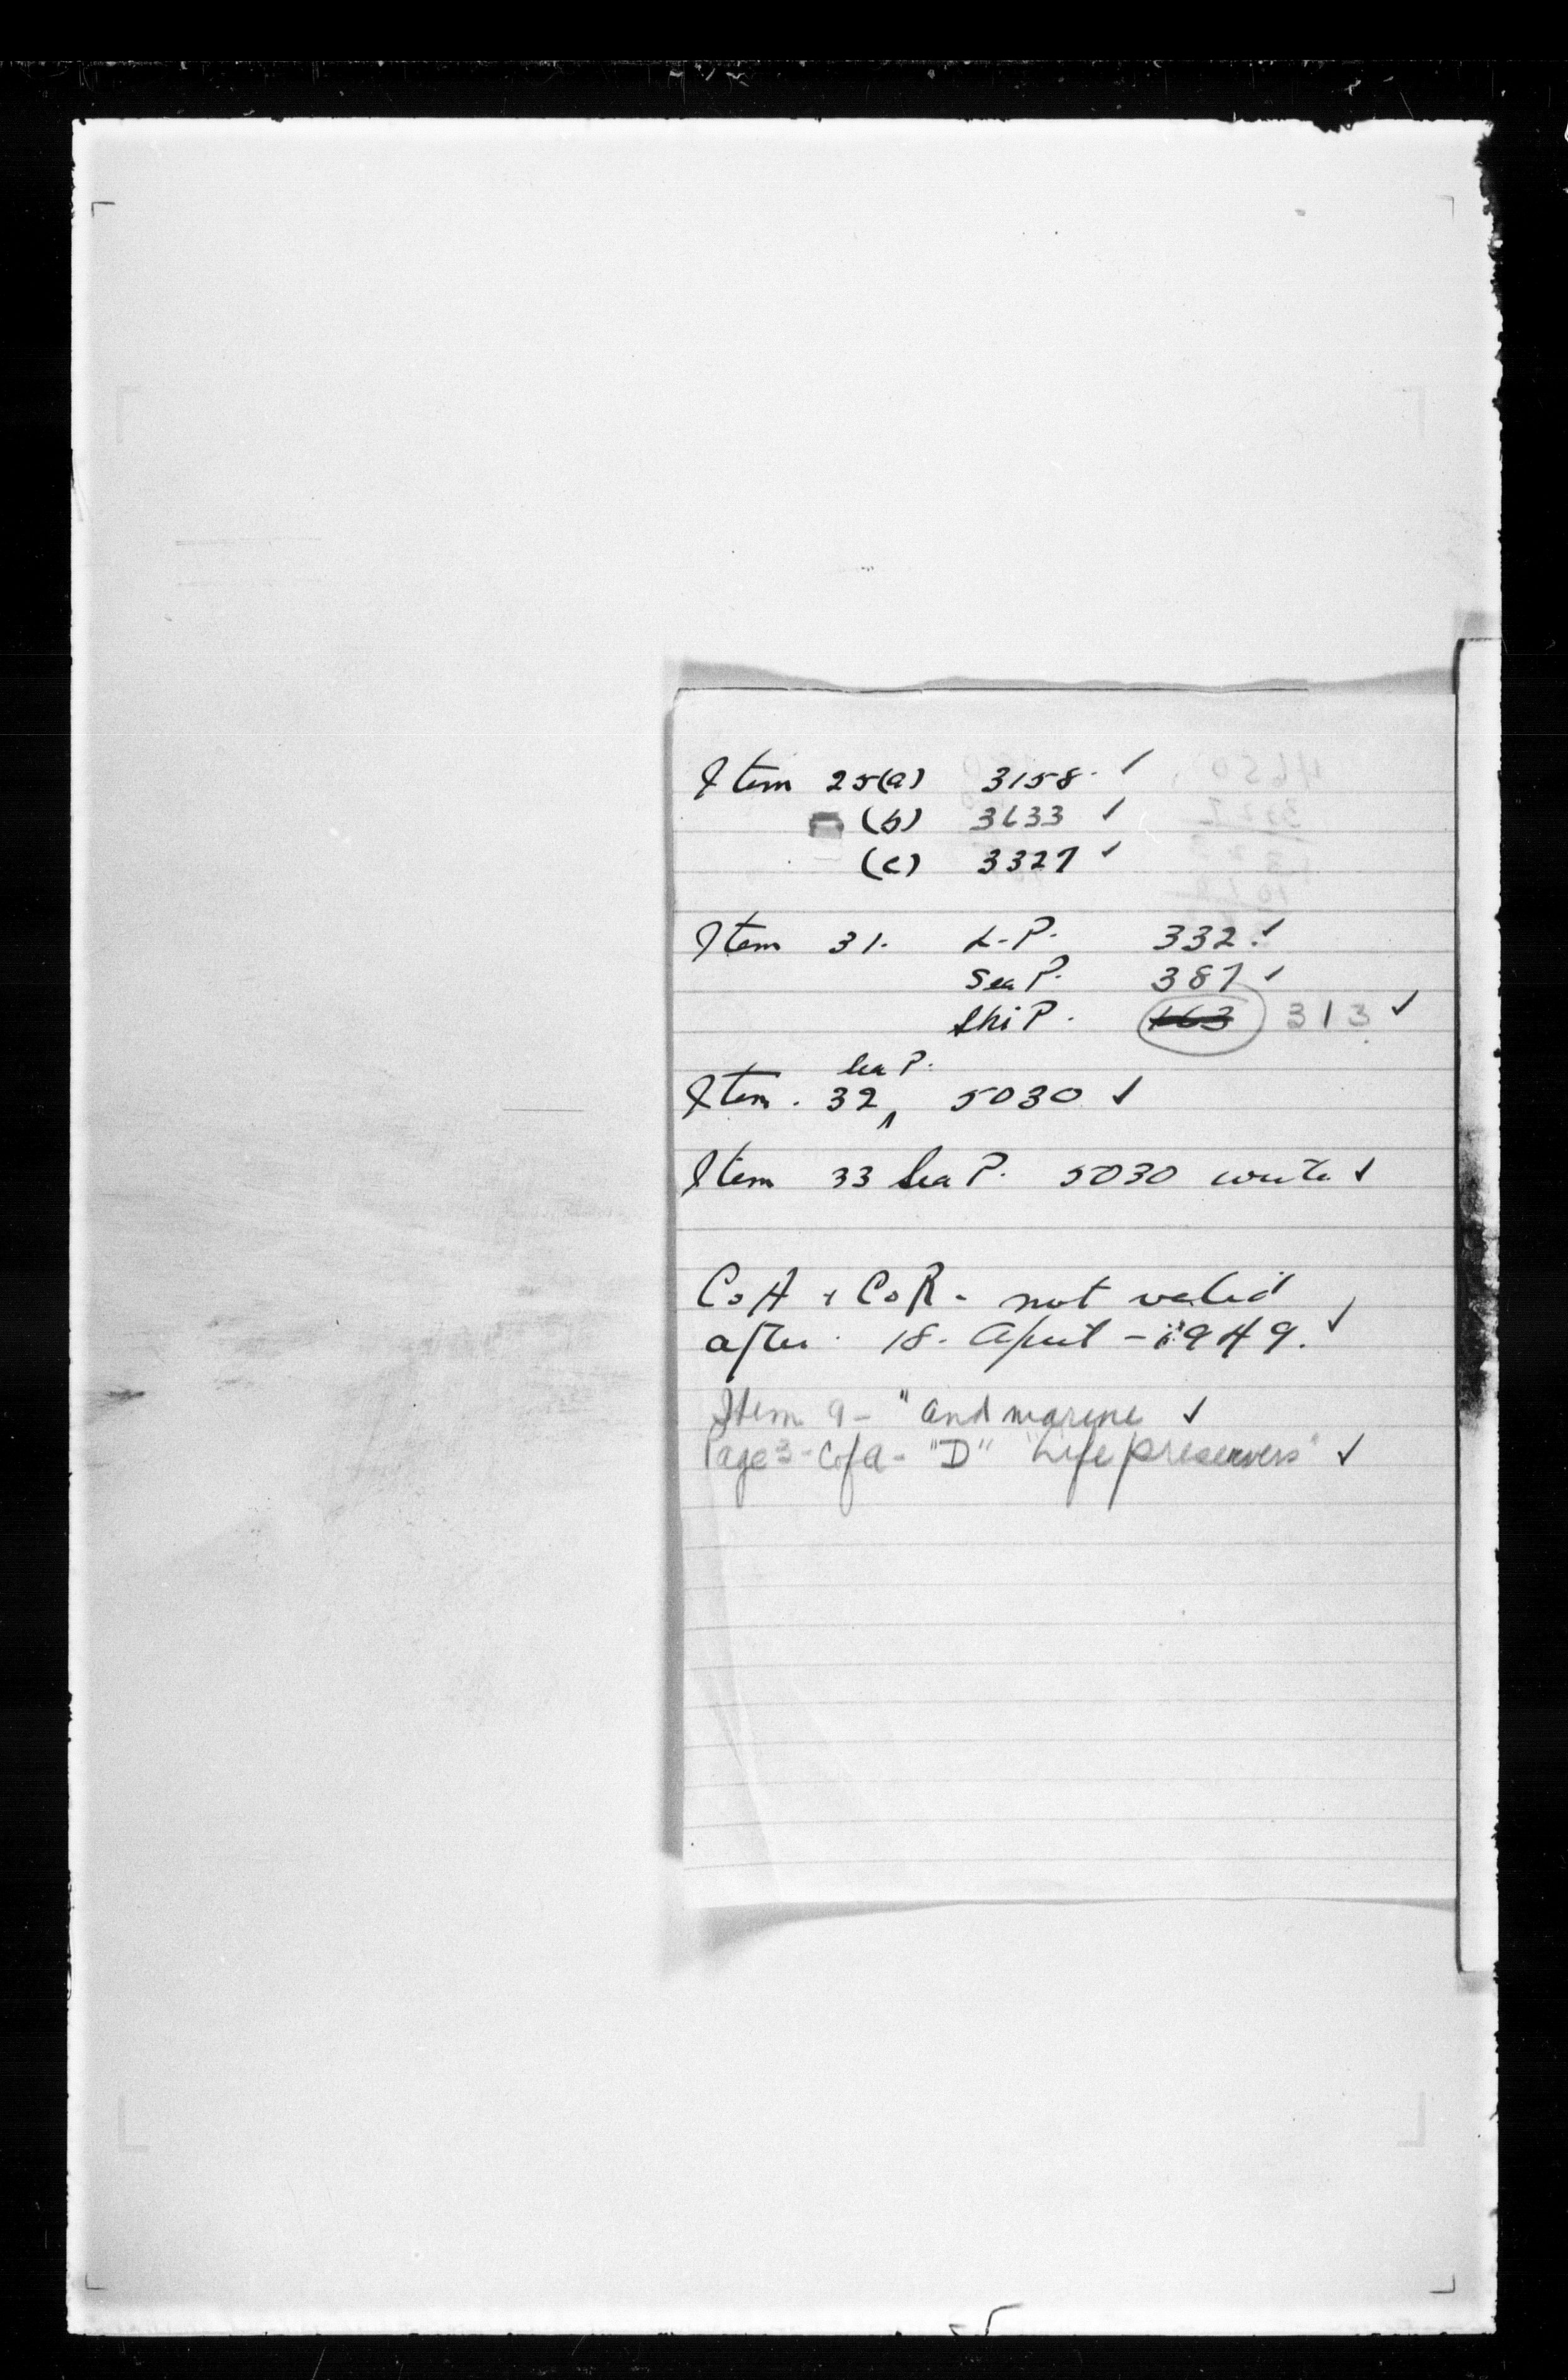 Item 25(a) 3158. ✓
(b) 3633 ✓
(c) 3327 ✓
Item 31. L.P. 332. ✓
Sea P. 387 ✓
Ski P. 163 313 ✓
Sea P.
Item. 32 ‸ 5030 ✓
Item 33 Sea P. 5030 write ✓
C.o.A + C.o.R - not valid
after 18. April - 1949. ✓
Item 9 - "and marine ✓
Page 3 - C of A - "D" "Life preservers" ✓